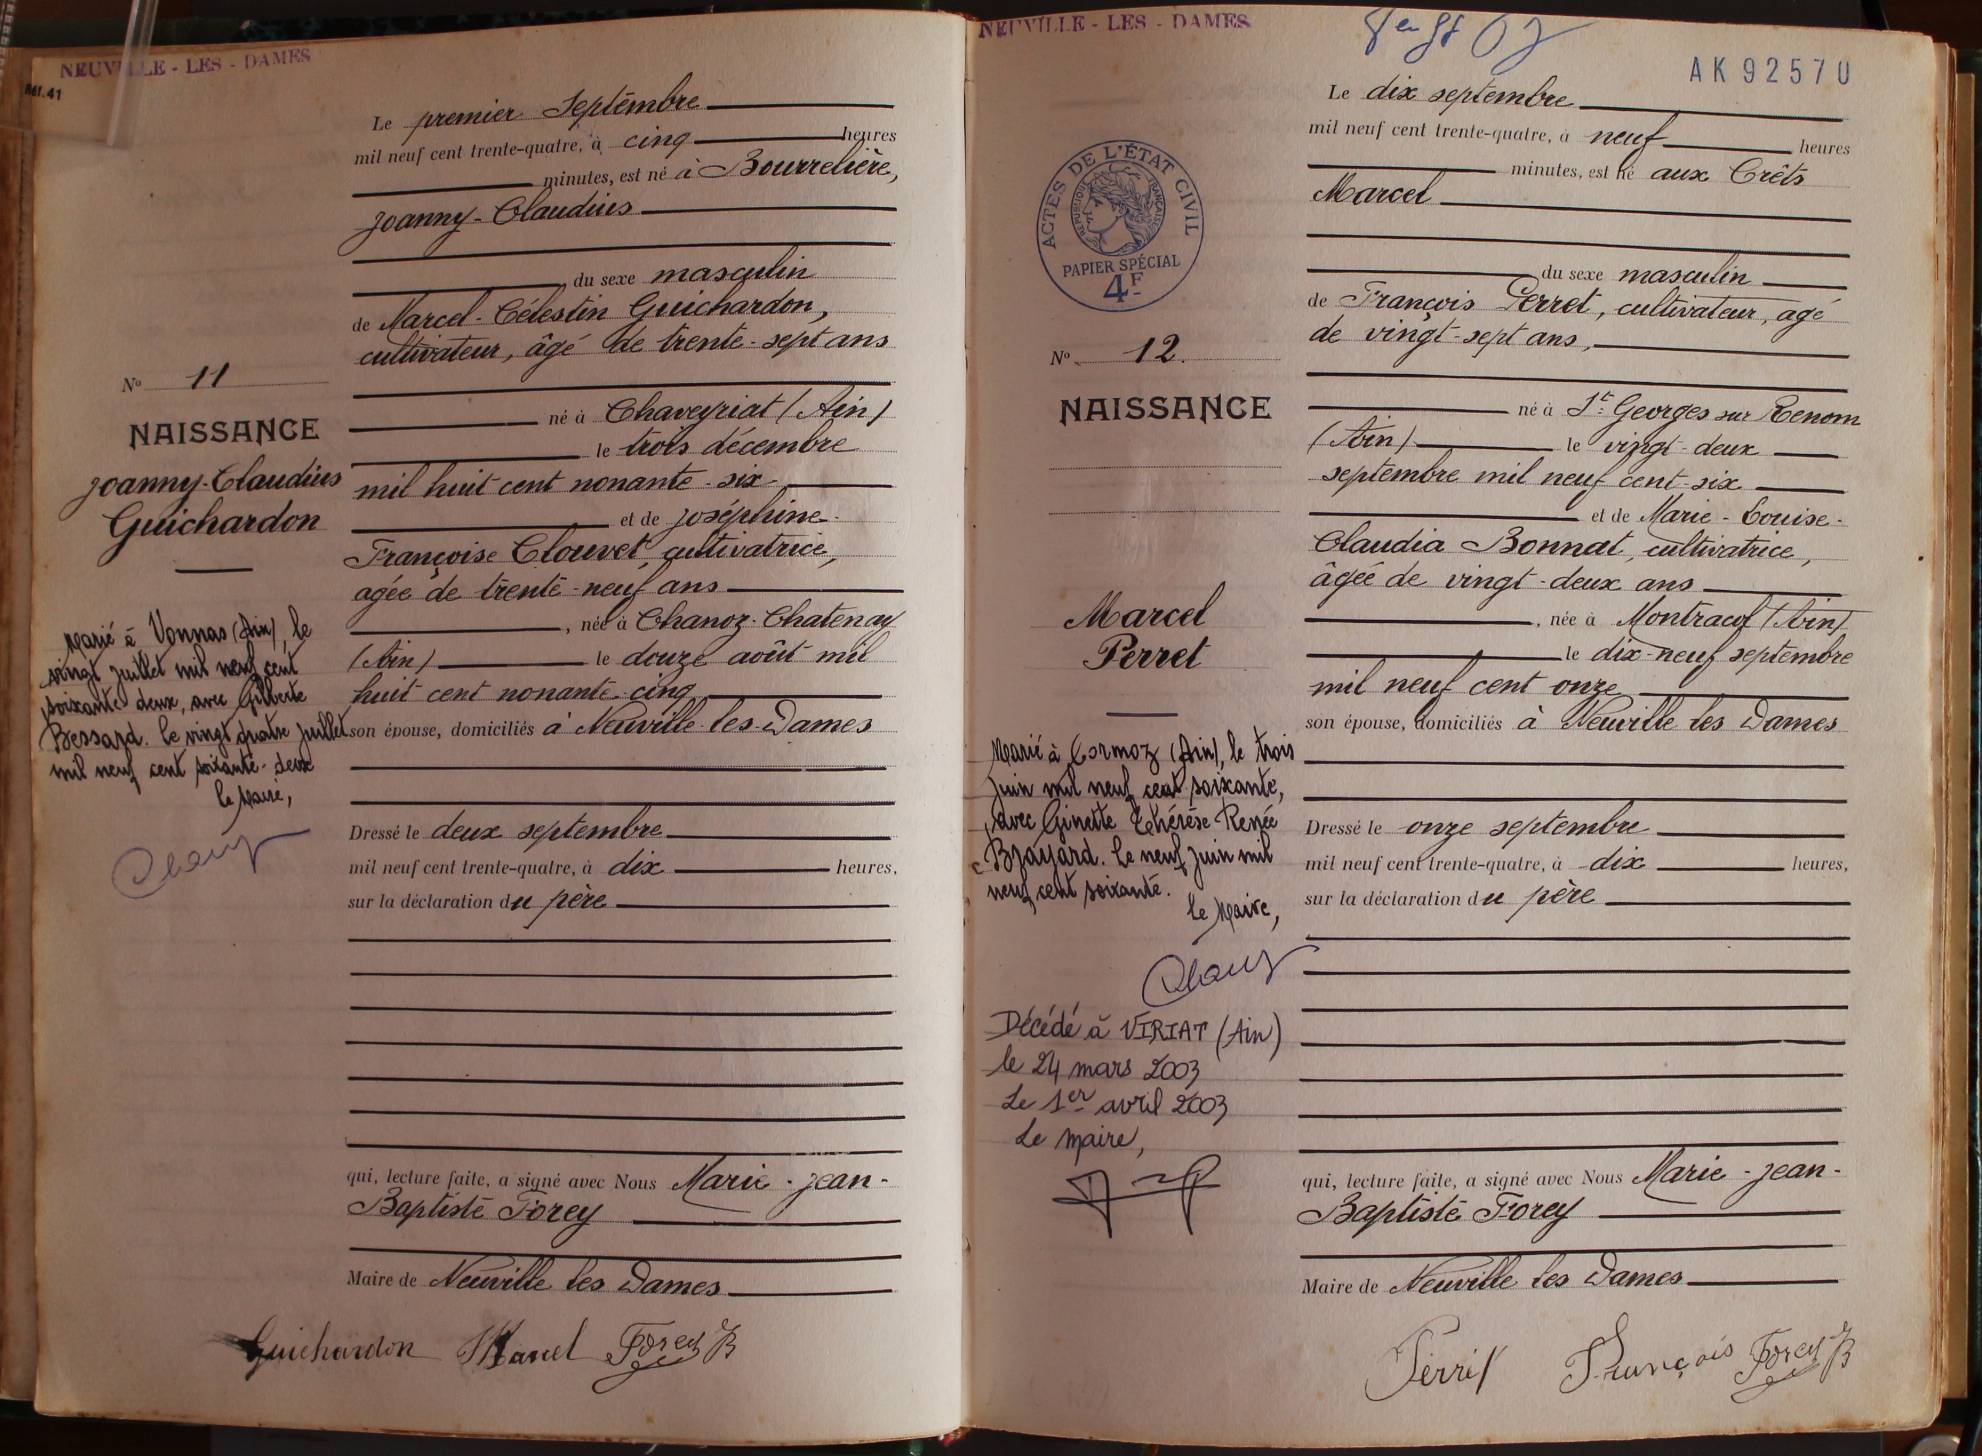 NEUVILLE - LES - DAMES
Réf. 41
Le premier Septembre
mil neuf cent trente-quatre, à cinq heures
minutes, est né à Bourrelière,
Joanny-Claudius
du sexe masculin
de Marcel-Célestin Guichardon,
cultivateur, âgé de trente-sept ans
né à Chaveyriat (Ain)
le trois décembre
mil huit cent nonante-six
et de Joséphine-
Françoise Clouvet, cultivatrice,
agée de trente-neuf ans
, née à Chanoz-Chatenay
(Ain) le douze août mil
huit cent nonante-cinq
son épouse, domiciliés à Neuville-les-Dames
Dressé le deux septembre
mil neuf cent trente-quatre, à dix heures,
sur la déclaration du père
qui, lecture faite, a signé avec Nous Marie-Jean-
Baptiste Forey
Maire de Neuville les Dames
Guichardon Marcel Forey JB
N° 11
NAISSANCE
Joanny-Claudius
Guichardon
Marié à Vonnas (Ain), le
vingt juillet mil neuf cent
soixante deux, avec Gilberte
Bessard. le vingt quatre juillet
mil neuf cent soixante-deux
le Maire,
NEUVILLE - LES - DAMES
AK 92570
ACTES DE L'ÉTAT CIVIL
RÉPUBLIQUE FRANÇAISE
PAPIER SPÉCIAL
4F
N° 12.
NAISSANCE
Marcel
Perret
Marié à Cormoz (Ain), le trois
juin mil neuf cent soixante,
avec Ginette Thérèse Renée
Brayard. le neuf juin mil
neuf cent soixante.
le Maire,
Décédé à VIRIAT (Ain)
le 24 mars 2003
Le 1er avril 2003
Le Maire,
Le dix septembre
mil neuf cent trente-quatre, à neuf heures
minutes, est né aux Crêts
Marcel
du sexe masculin
de François Perret, cultivateur, agé
de vingt-sept ans,
né à St Georges sur Renom
(Ain) le vingt-deux
septembre mil neuf cent-six
et de Marie-Louise-
Claudia Bonnat, cultivatrice,
âgée de vingt-deux ans
, née à Montracol (Ain)
le dix-neuf septembre
mil neuf cent onze
son épouse, domiciliés à Neuville les Dames
Dressé le onze septembre
mil neuf cent trente-quatre, à dix heures,
sur la déclaration du père
qui, lecture faite, a signé avec Nous Marie-Jean-
Baptiste Forey
Maire de Neuville les Dames
Perret François Forey JB